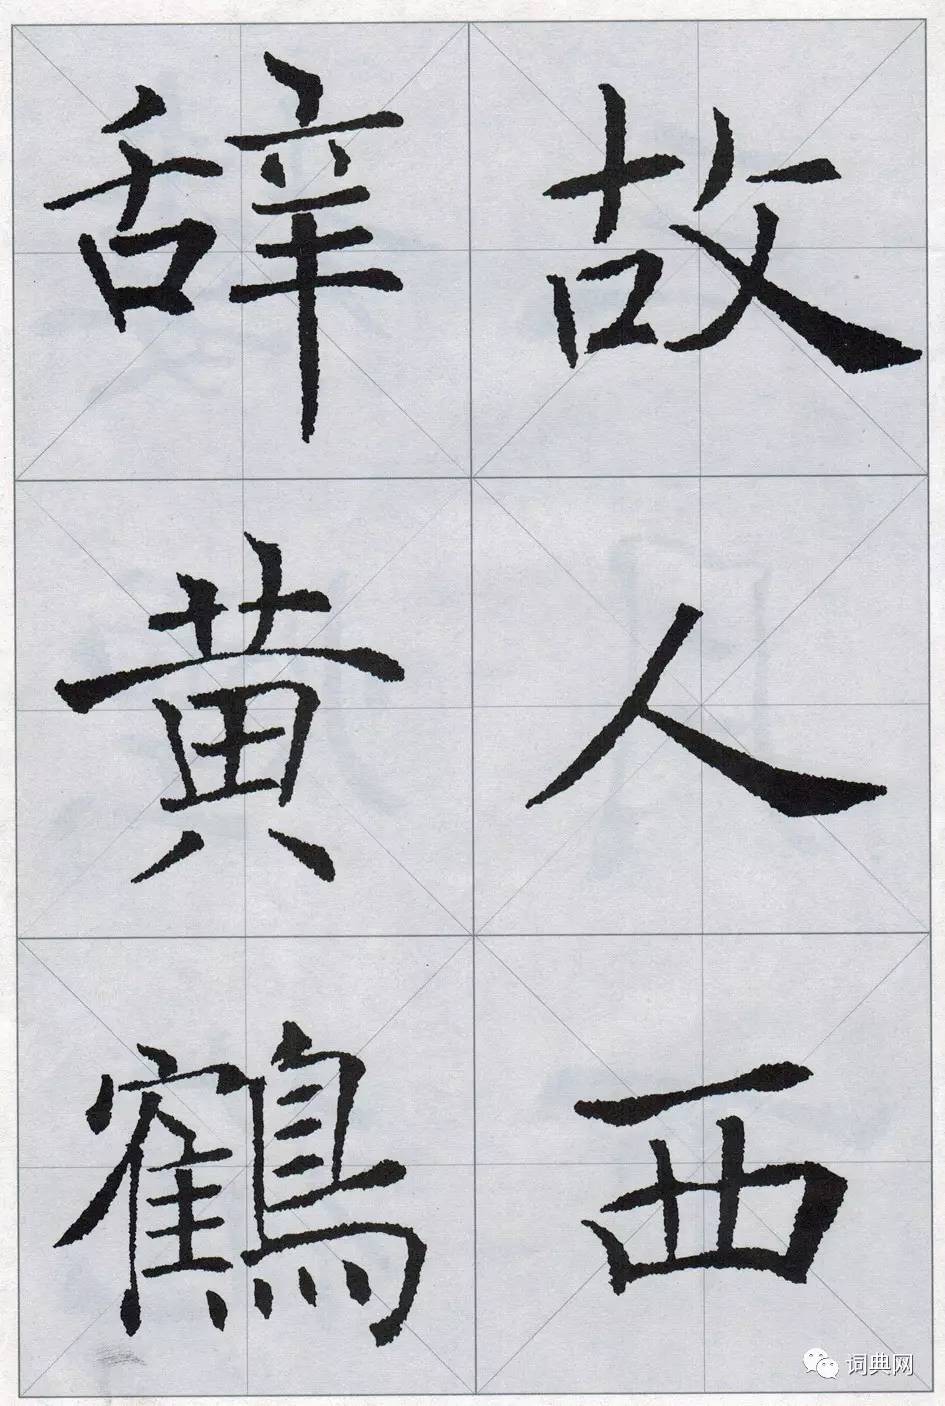 故人西
辞黄鹤
词典网